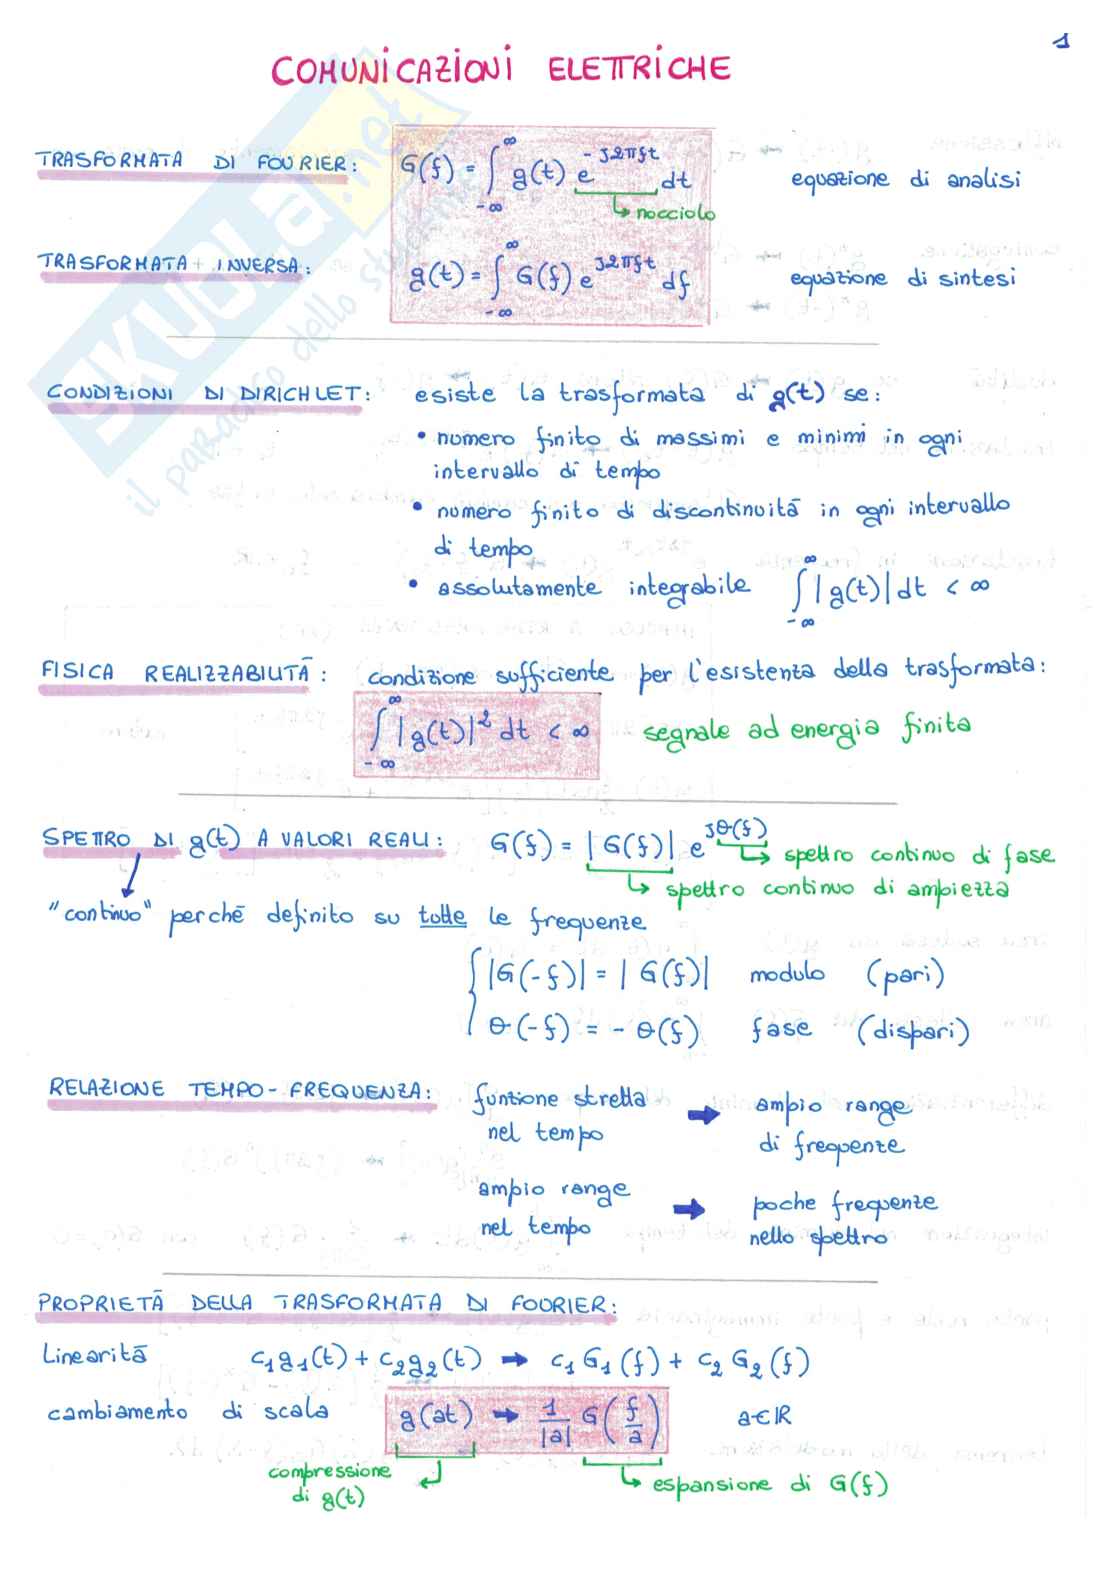 1
COMUNICAZIONI ELETTRICHE
TRASFORMATA DI FOURIER: G(f) = ∫_{-∞}^{∞} g(t) e^{-j2πft} dt equazione di analisi
↳ nocciolo
TRASFORMATA INVERSA: g(t) = ∫_{-∞}^{∞} G(f) e^{j2πft} df equazione di sintesi
CONDIZIONI DI DIRICHLET: esiste la trasformata di g(t) se:
• numero finito di massimi e minimi in ogni
intervallo di tempo
• numero finito di discontinuità in ogni intervallo
di tempo
• assolutamente integrabile ∫_{-∞}^{∞} |g(t)| dt < ∞
FISICA REALIZZABILITÀ: condizione sufficiente per l'esistenza della trasformata:
∫_{-∞}^{∞} |g(t)|² dt < ∞ segnale ad energia finita
SPETTRO DI g(t) A VALORI REALI: G(f) = |G(f)| e^{jθ(f)}
↳ spettro continuo di fase
↳ spettro continuo di ampiezza
"continuo" perché definito su tutte le frequenze
{ |G(-f)| = |G(f)| modulo (pari)
θ(-f) = - θ(f) fase (dispari)
RELAZIONE TEMPO-FREQUENZA: funzione stretta → ampio range
nel tempo di frequenze
ampio range → poche frequenze
nel tempo nello spettro
PROPRIETÀ DELLA TRASFORMATA DI FOURIER:
Linearità c₁g₁(t) + c₂g₂(t) → c₁G₁(f) + c₂G₂(f)
cambiamento di scala g(at) → 1/|a| G(f/a) a∈ℝ
compressione
di g(t)
↳ espansione di G(f)
SKUOLA.net
il paradiso dello studente